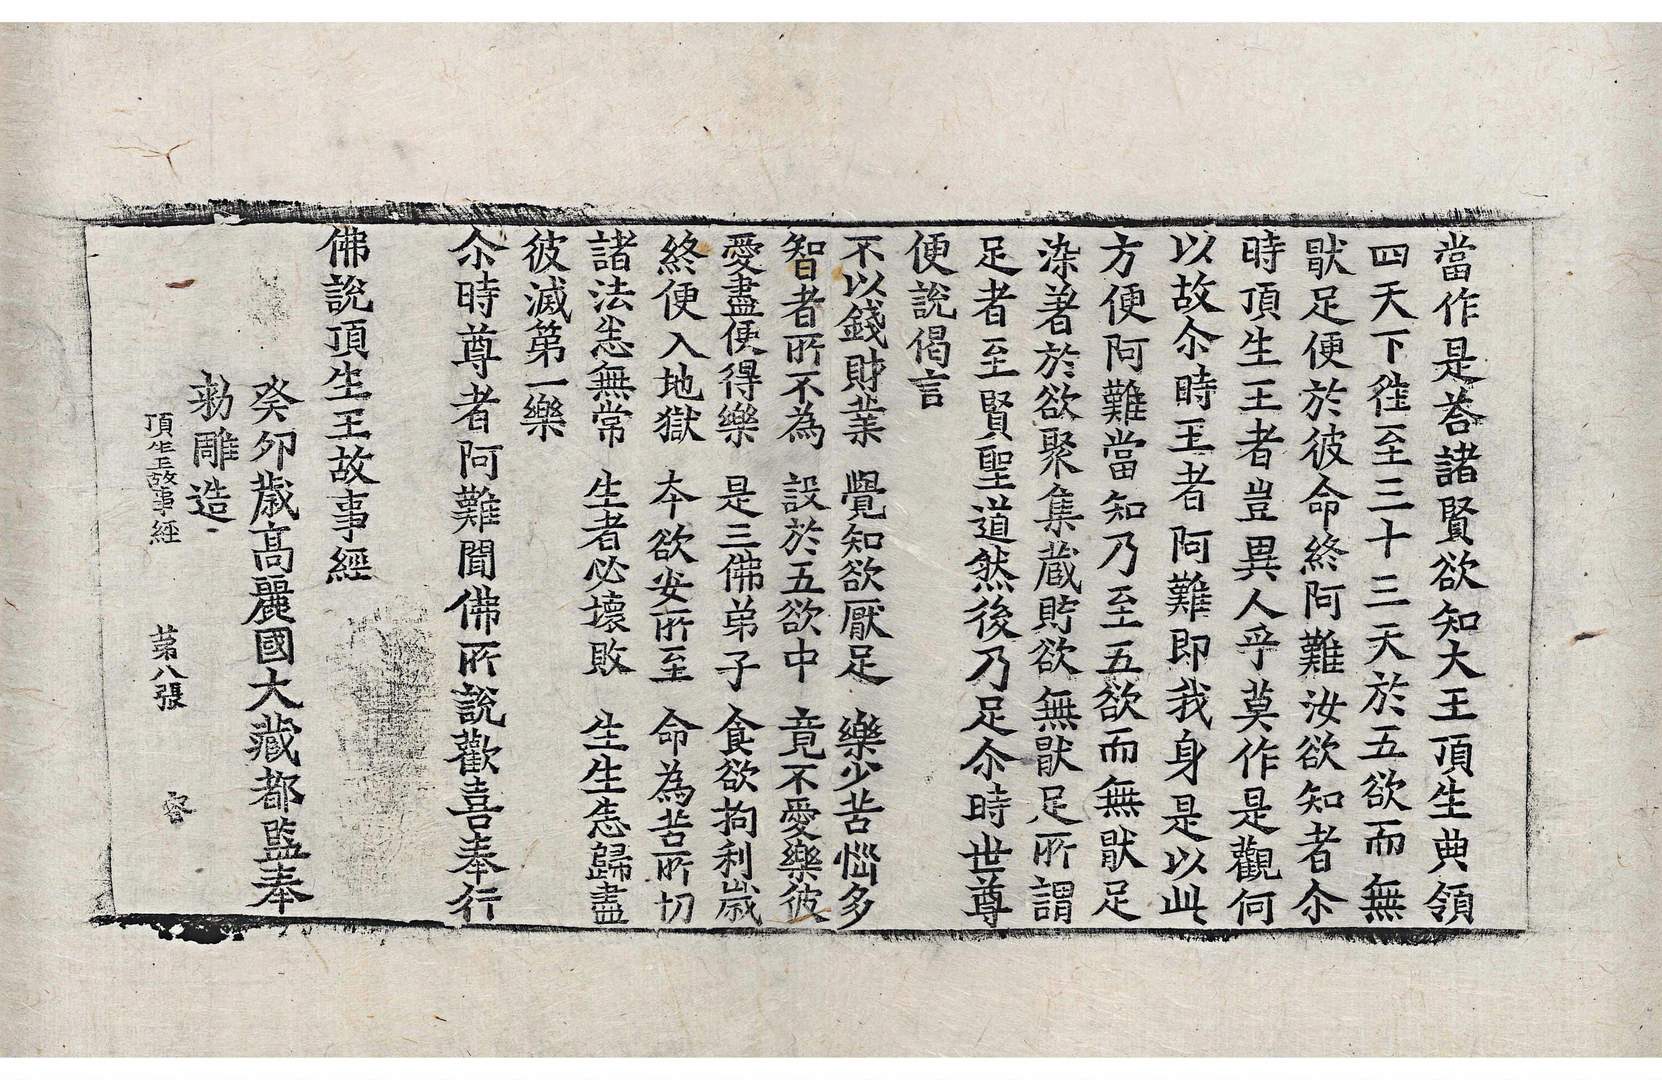 當作是荅諸賢欲知大王頂生典領
四天下徃至三十三天於五欲而無
猒足便於彼命終阿難汝欲知者尒
時頂生王者豈異人乎莫作是觀何
以故尒時王者阿難即我身是以此
方便阿難當知乃至五欲而無猒足
染著於欲聚集蔵貯欲無猒足所謂
足者至賢聖道然後乃足尒時世尊
便說偈言
不以錢財業 覺知欲厭足 樂少苦惱多
智者所不為 設於五欲中 竟不愛樂彼
愛盡便得樂 是三佛弟子 食欲拘利歲
終便入地獄 本欲安所至 命為苦所切
諸法悉無常 生者必壞敗 生生悉歸盡
彼滅第一樂
尒時尊者阿難聞佛所說歡喜奉行
佛說頂生王故事經
癸卯歳高麗國大藏都監奉
勑雕造
頂生王故事經 第八張 容